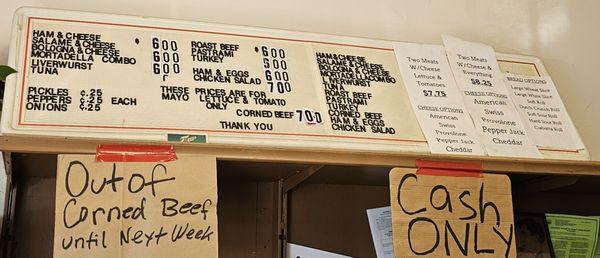 HAM & CHEESE
SALAME & CHEESE
BOLOGNA & CHEESE
MORTADELLA COMBO
LIVERWURST
TUNA
600
600
PICKLES ¢.25
PEPPERS ¢.25 EACH
ONIONS ¢.25
ROAST BEEF 600
PASTRAMI
TURKEY
HAM & EGGS
CHICKEN SALAD 700
THESE PRICES ARE FOR
MAYO LETTUCE & TOMATO
ONLY
CORNED BEEF 700
THANK YOU
HAM & CHEESE
SALAME & CHEESE
BOLOGNA & CHEESE
MORTADELLA COMBO
LIVERWURST
TUNA
ROAST BEEF
PASTRAMI
TURKEY
CORNED BEEF
HAM & EGGS
CHICKEN SALAD
Two Meats
W/Cheese
Lettuce &
Tomatoes
$7.75
CHEESE OPTIONS
American
Swiss
Provolone
Pepper Jack
Cheddar
Two Meats
W/Cheese &
Everything
$8.25
CHEESE OPTIONS
American
Swiss
Provolone
Pepper Jack
Cheddar
BREAD OPTIONS
Large Wheat Slice
Large White Slice
Soft Roll
Dutch Crunch Roll
Soft Sour Roll
Hard Sour Roll
Ciabatta Roll
Out of
Corned Beef
until Next Week
Cash
ONLY